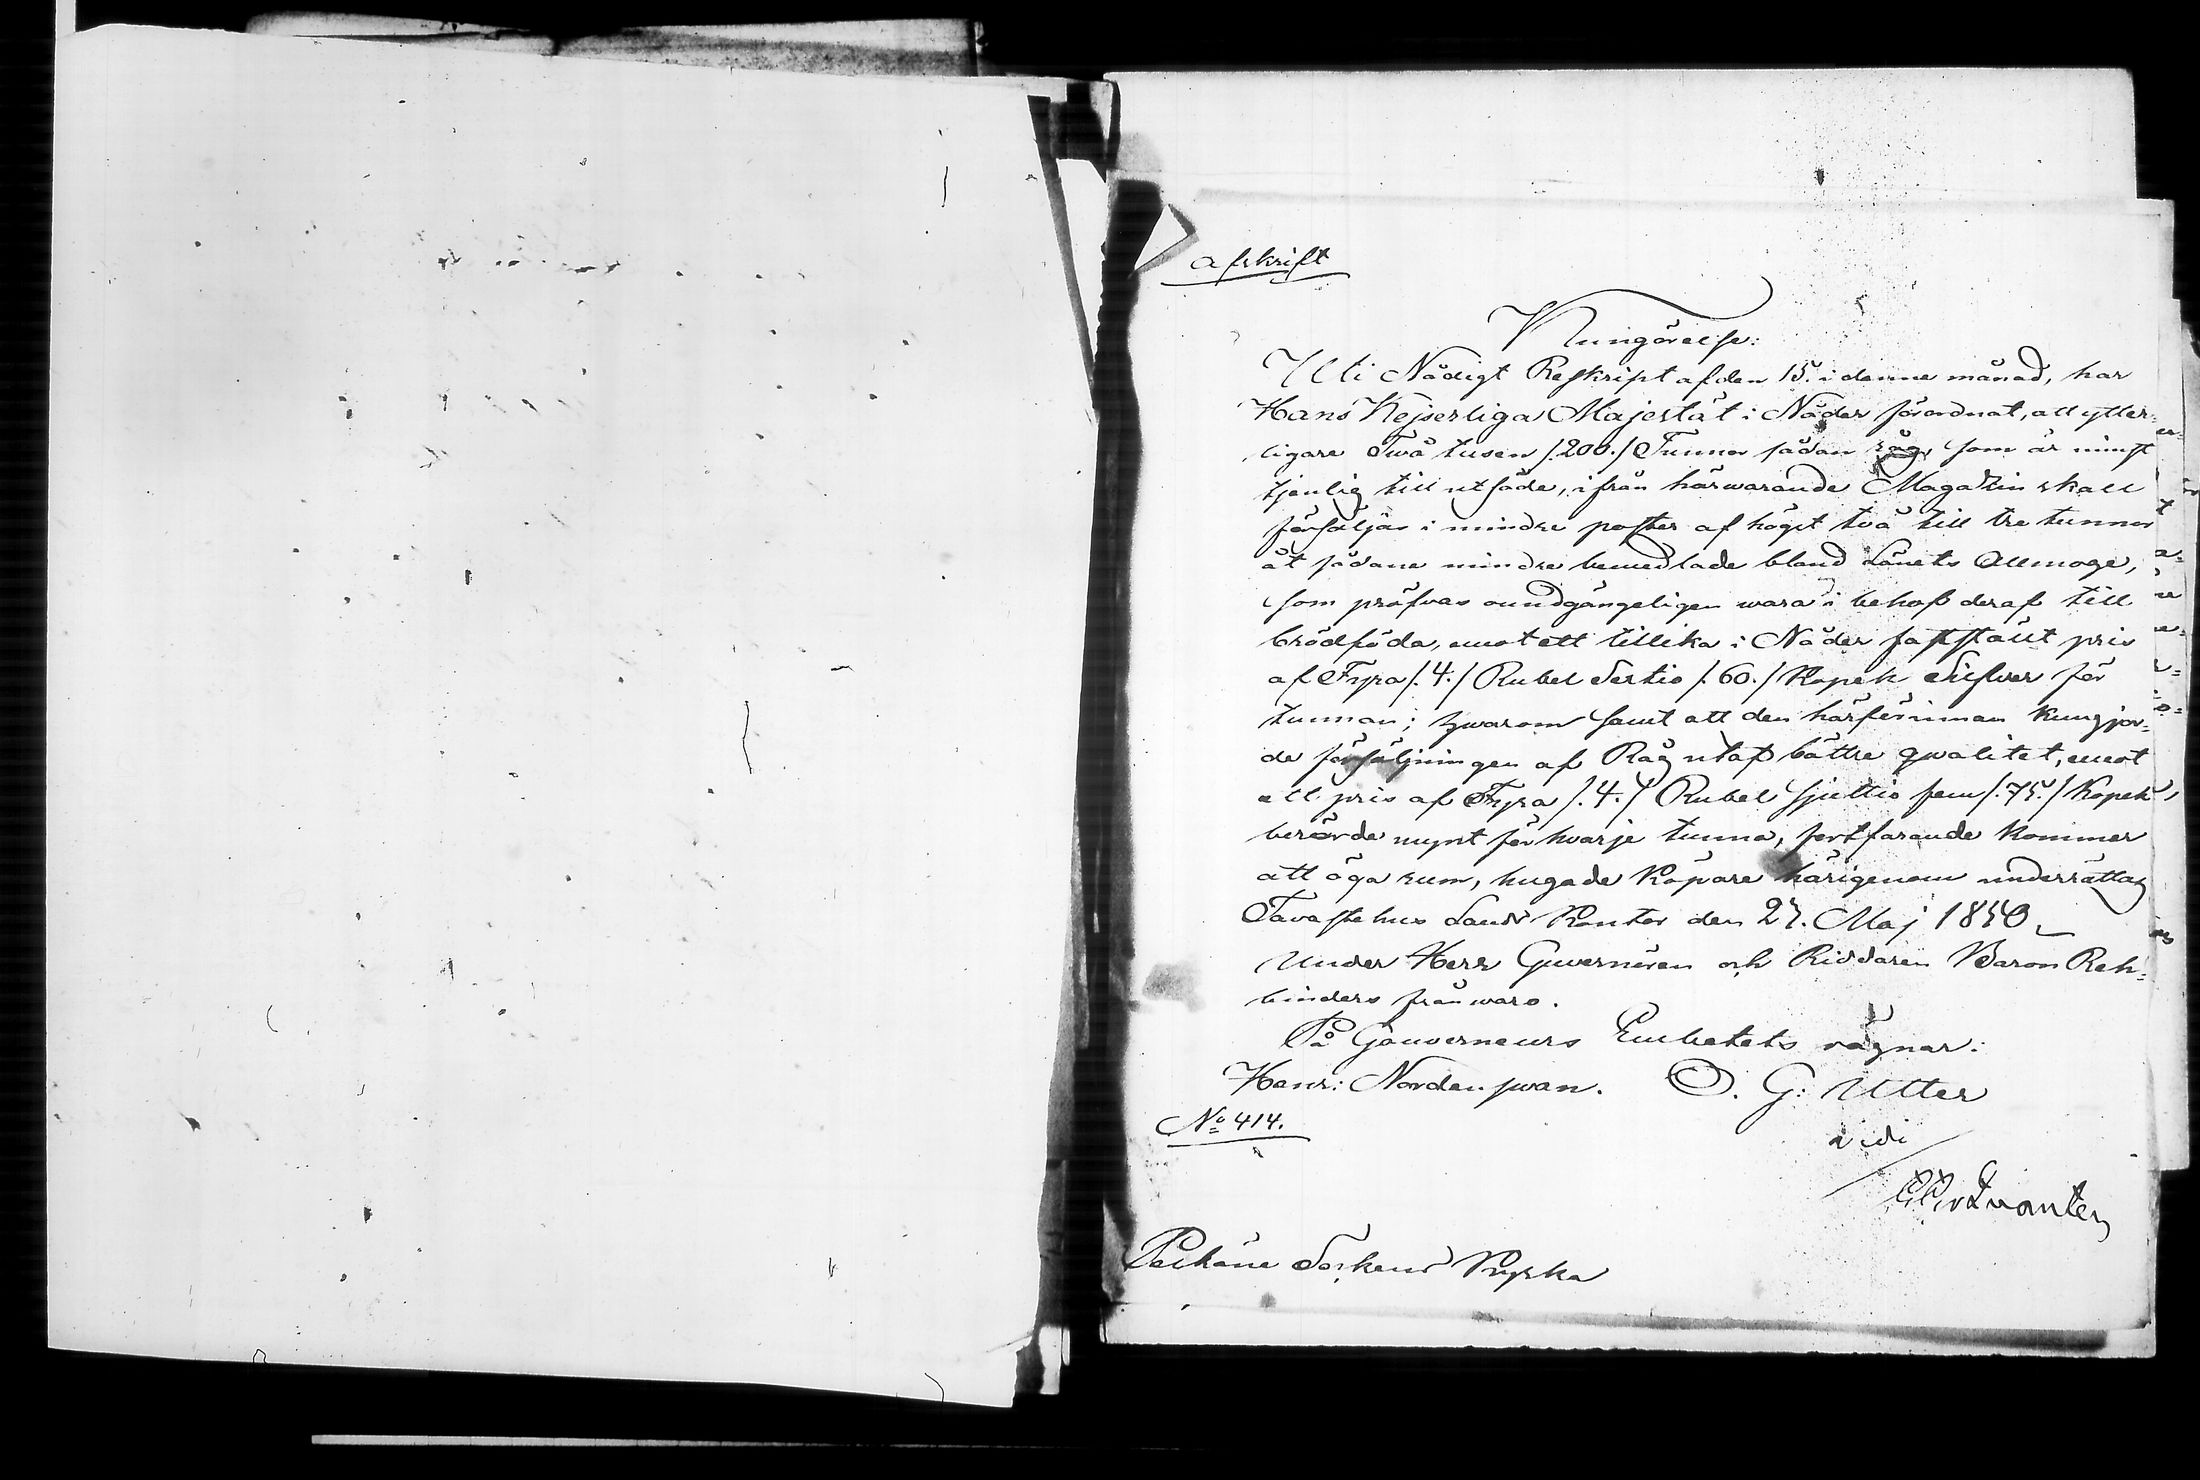 Afskrift
Kungörelse:
Uti Nådigt Reskript af den 15. i denne månad, har
Hans Kejserliga Majestät i Nåder förordnat, att ytter-
ligare Två tusen /:200.:/ Tunnor sådan råg, som är minst
tjenlig till utsäde, ifrån härwarande Magazin skall
försäljas i mindre poster af högst två till tre tunnor
åt sådane mindre bemedlade bland Länets Allmoge,
som pröfvas oundgängeligen wara i behof deraf till
brödföda, emot ett tillika i Nåder fastställt pris
af Fyra /:4.:/ Rubel Sextio /:60.:/ Kopek Silfver för
tunnan; hwarom samt att den härförinnan kungjor-
de försäljningen af Råg utaf bättre qwalitet, emot
ett pris af Fyra /:4.:/ Rubel Sjuttio fem /:75.:/ Kopek,
berörde mynt för hvarje tunna, fortfarande kommer
att äga rum, hugade Köpare härigenom underrättas
Tavastehus Lands Kontor den 27. Maj 1850.
Under Herr Guvernören och Riddaren Baron Reh-
binders frånwaro.
På Gouverneurs Embetets vägnar:
Henr: Nordenswan. O. G: Utter
No 414.
vidi
v Qvanten
Pelkäne Sockens Kyrka